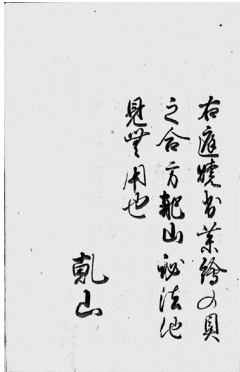 右庭焼薬絵の具
之合方乾山秘法他
見無用也
乾山